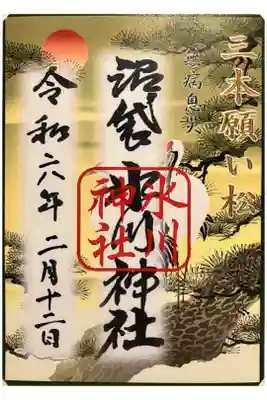 三本願い松
無病息災
沼袋氷川神社
氷川
神社
令和六年二月十二日